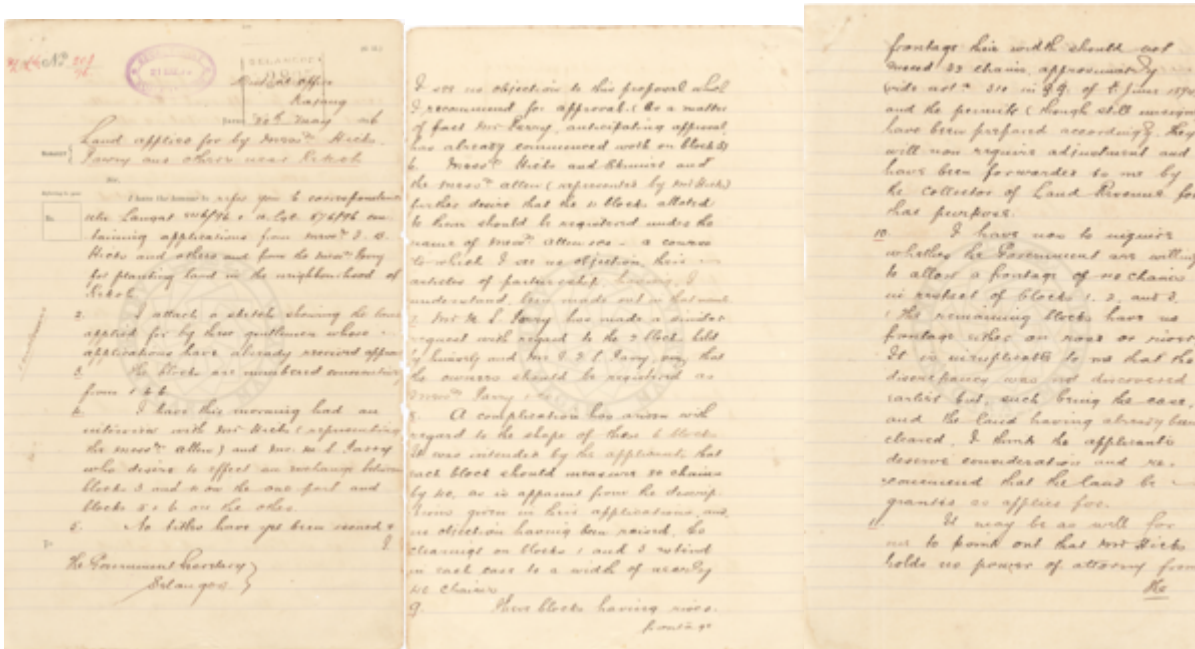 No 208/96
District Office
Kajang
30th May 96
Land applied for by Messrs Hicks
Parry and others near Rekoh
Sir,
I have the honour to refer you to correspondence
Langat 576/96
taining applications from Messrs
Hicks and others and from the Messrs Parry
for planting land in the neighbourhood of
Rekoh
2. I attach a sketch showing the land
applied for by these gentlemen whose
applications have already received
3. The blocks are numbered consecutively
from 1 to 6
4. I have this morning had an
interview with Mr Hicks (representing
the Messrs Allen) and Mr M. L. Parry
who desire to effect an exchange between
blocks 3 and 4 on the one part and
blocks 5 & 6 on the other.
5. No titles have yet been issued &
I
The Government Secretary
Selangor
I see no objection to this proposal which
I recommend for approval. (As a matter
of fact Mr Parry, anticipating approval,
has already commenced work on block 3)
6. Messrs Hicks and and
the Messrs Allen (represented by Mr Hicks)
further desire that the 4 blocks allotted
to them should be registered under the
name of Messrs Allen – a course
to which I see no objection, their
articles of partnership having, I
understand, been made out in that name
7. Mr M. L. Parry has made a similar
request with regard to the 2 blocks held
by himself and Mr Parry, viz, that
the owners should be registered as
Messrs Parry
8. A complication has arisen with
regard to the shape of these 6 blocks.
It was intended by the applicants that
each block should measure
by 40, as is apparent from the descrip-
tions given in their applications, and,
no objection having been raised, the
clearings on blocks 1 and 3 extend
in each case to a width of nearly
40 chains
9. These blocks having river
frontage
frontage their width should not
exceed chains, approximately
(vide 310 in G.G. of June
and the permits (though still unsigned)
have been prepared accordingly. They
will now require adjustment and
have been forwarded to me by
the Collector of Land Revenue for
that purpose.
10. I have now to inquire
whether the Government are willing
to allow a frontage of 40 chains
in respect of blocks 1, 2, and 3.
(The remaining blocks have no
frontage either on road or river)
It is inexplicable to me that the
discrepancy was not discovered
earlier but, such being the case,
and the land having already been
cleared, I think the applicants
deserve consideration and re-
commend that the land be
granted as applied for.
11. It may be as well for
me to point out that Mr Hicks
holds no power of attorney from
the